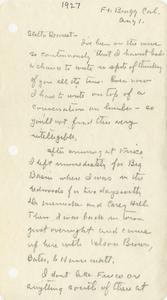 1927
Ft. Bragg Cal.
Aug 1.
Hello Dearest –
I've been on the move
so continuously that I haven't had
a chance to write in spite of thinking
of you all the time. Even now
I have to write on top of a
conversation on lumber – so
you'll not find this very
intelligible.
After arriving at Frisco
I left immediately for Big
Basin where I was in the
redwoods for two days with
De
and Casey Hill.
Then I was back in town
just overnight and came
up here with Nelson Brown,
I don't like Frisco or
anything south of there at